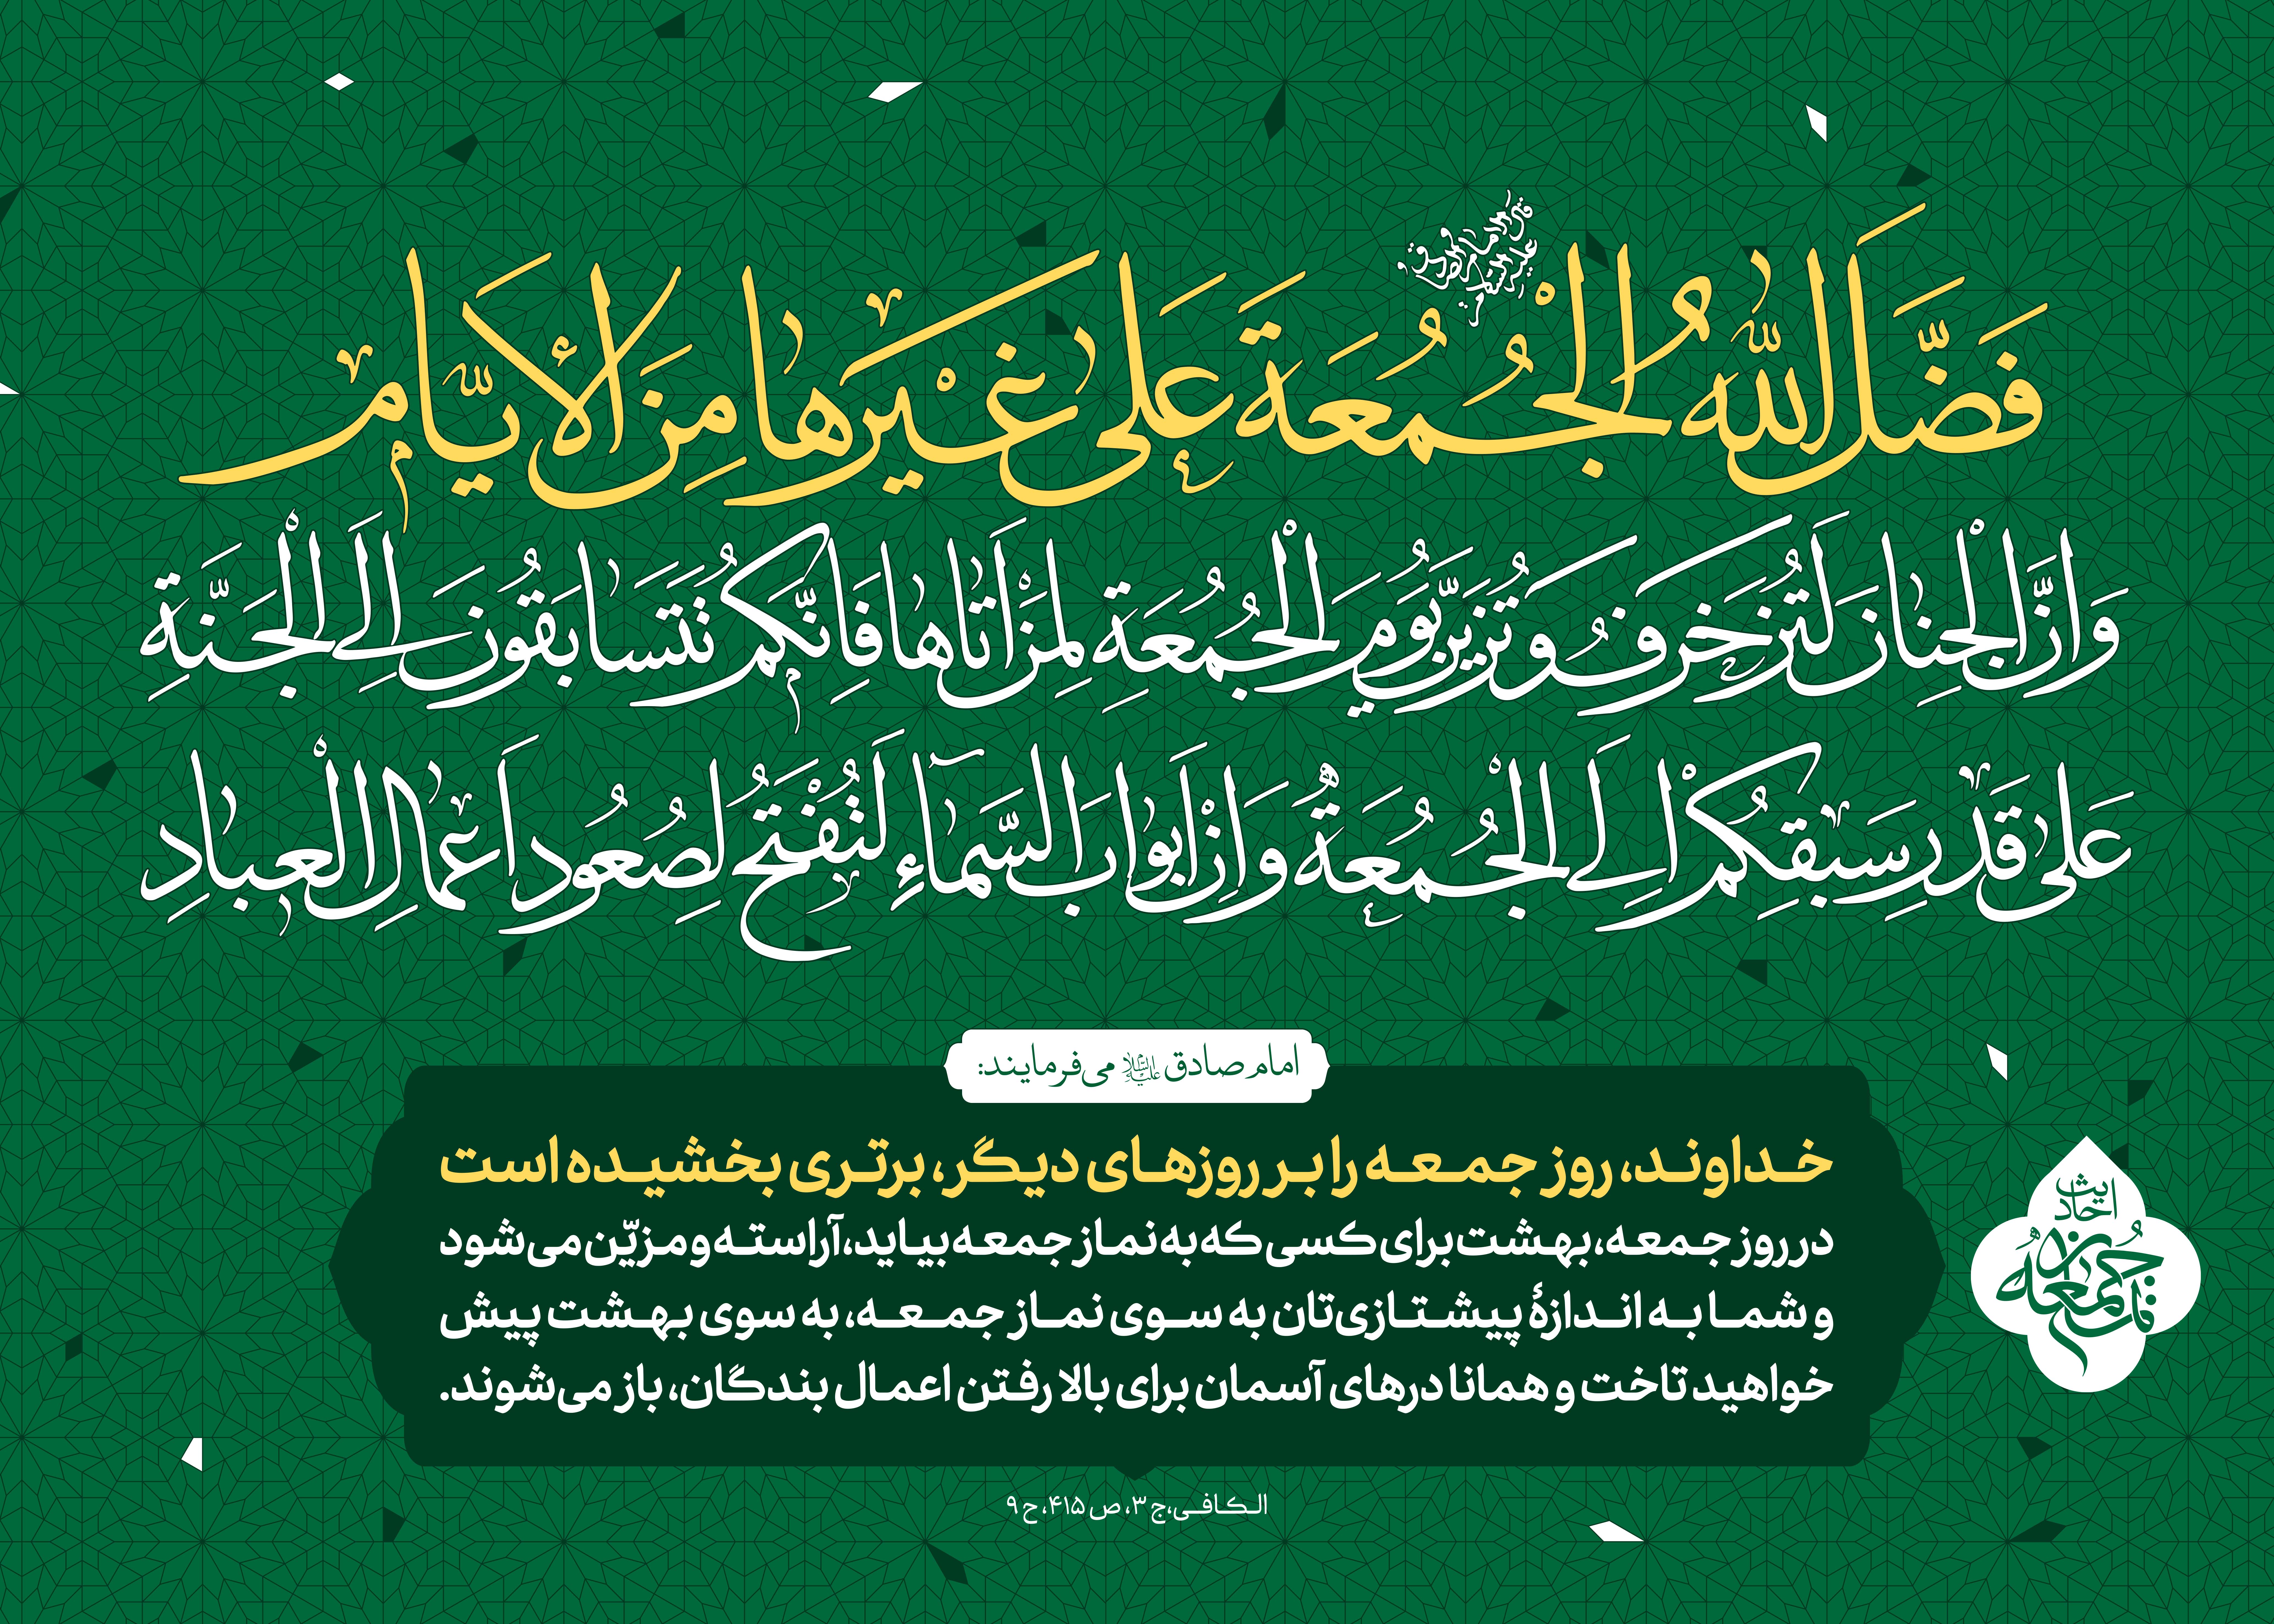 قال الامام الصادق علیه السلام:
فَضَّلَ اللهُ الْجُمُعَةَ عَلی غَیْرِها مِنَ الأَیّام
وَ اِنَّ الْجِنانَ لَتُزَخرَفُ و تُزَیَّنُ یَومَ الْجُمُعَةِ لِمَنْ اَتاها فَاِنَّکُم تَتَسابَقُونَ اِلَی الْجَنَّةِ
عَلی قَدْرِ سَبْقِکُمْ اِلَی الْجُمُعَةِ وَ اِنَّ اَبْوابَ السَّماءِ لَتُفْتَحُ لِصُعُودِ اَعْمالِ الْعِبادِ
امام صادق علیه السلام می‌فرمایند:
خداوند، روز جمعه را بر روزهای دیگر، برتری بخشیده است
در روز جمعه، بهشت برای کسی که به نماز جمعه بیاید، آراسته و مزیّن می‌شود
و شما به اندازهٔ پیشتازی‌تان به سوی نماز جمعه، به سوی بهشت پیش
خواهید تاخت و همانا درهای آسمان برای بالا رفتن اعمال بندگان، باز می‌شوند.
احادیث
نماز جمعه
الکافی، ج ۳، ص ۴۱۵، ح ۹